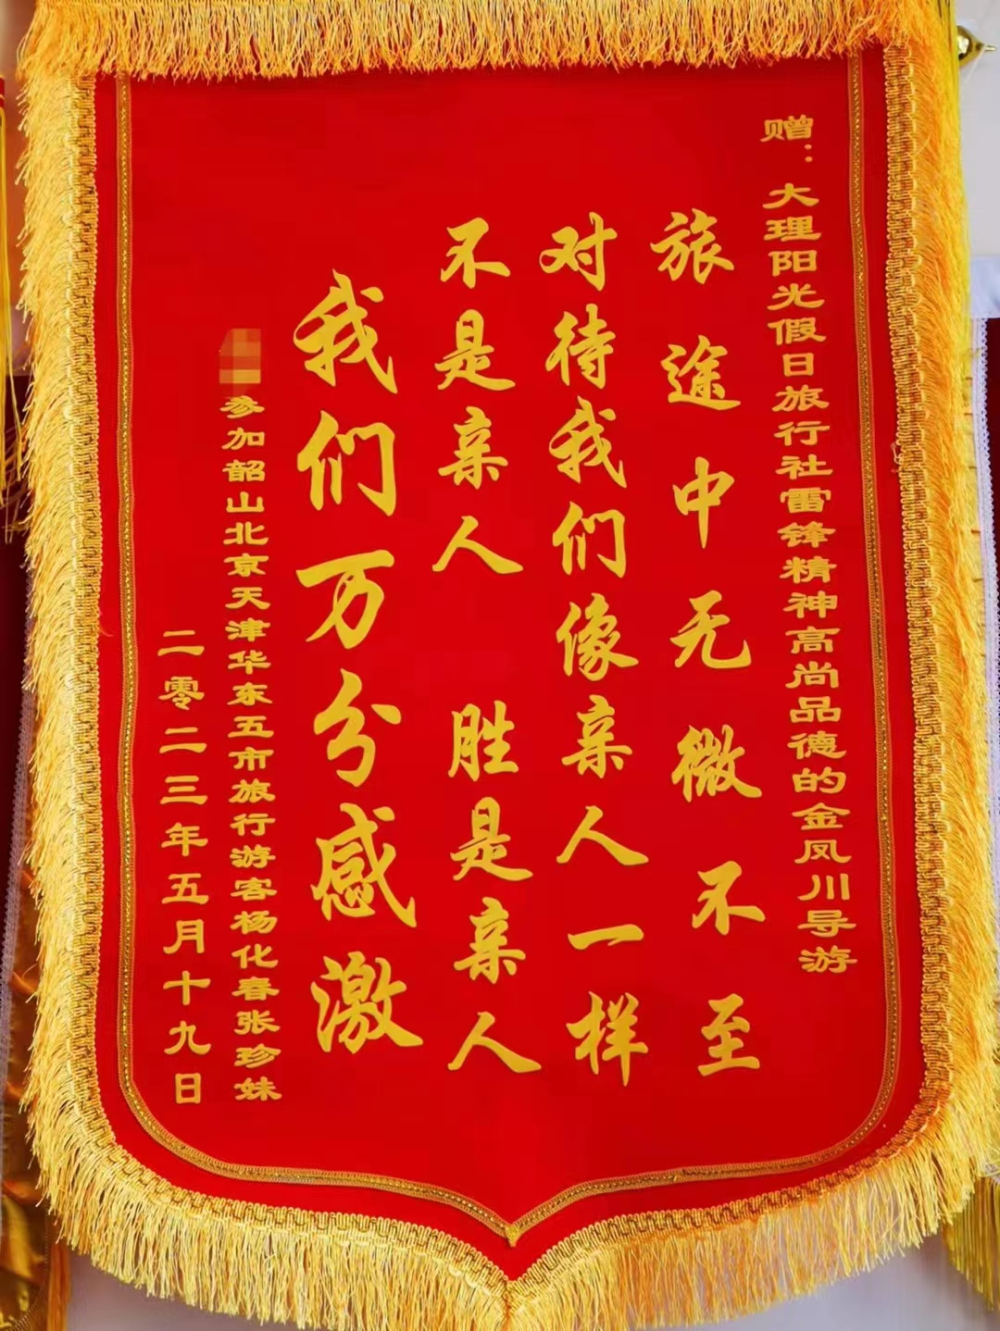 赠：大理阳光假日旅行社雷锋精神高尚品德的金凤川导游
旅途中无微不至
对待我们像亲人一样
不是亲人 胜是亲人
我们万分感激
参加韶山北京天津华东五市旅行游客杨化春张珍妹
二零二三年五月十九日